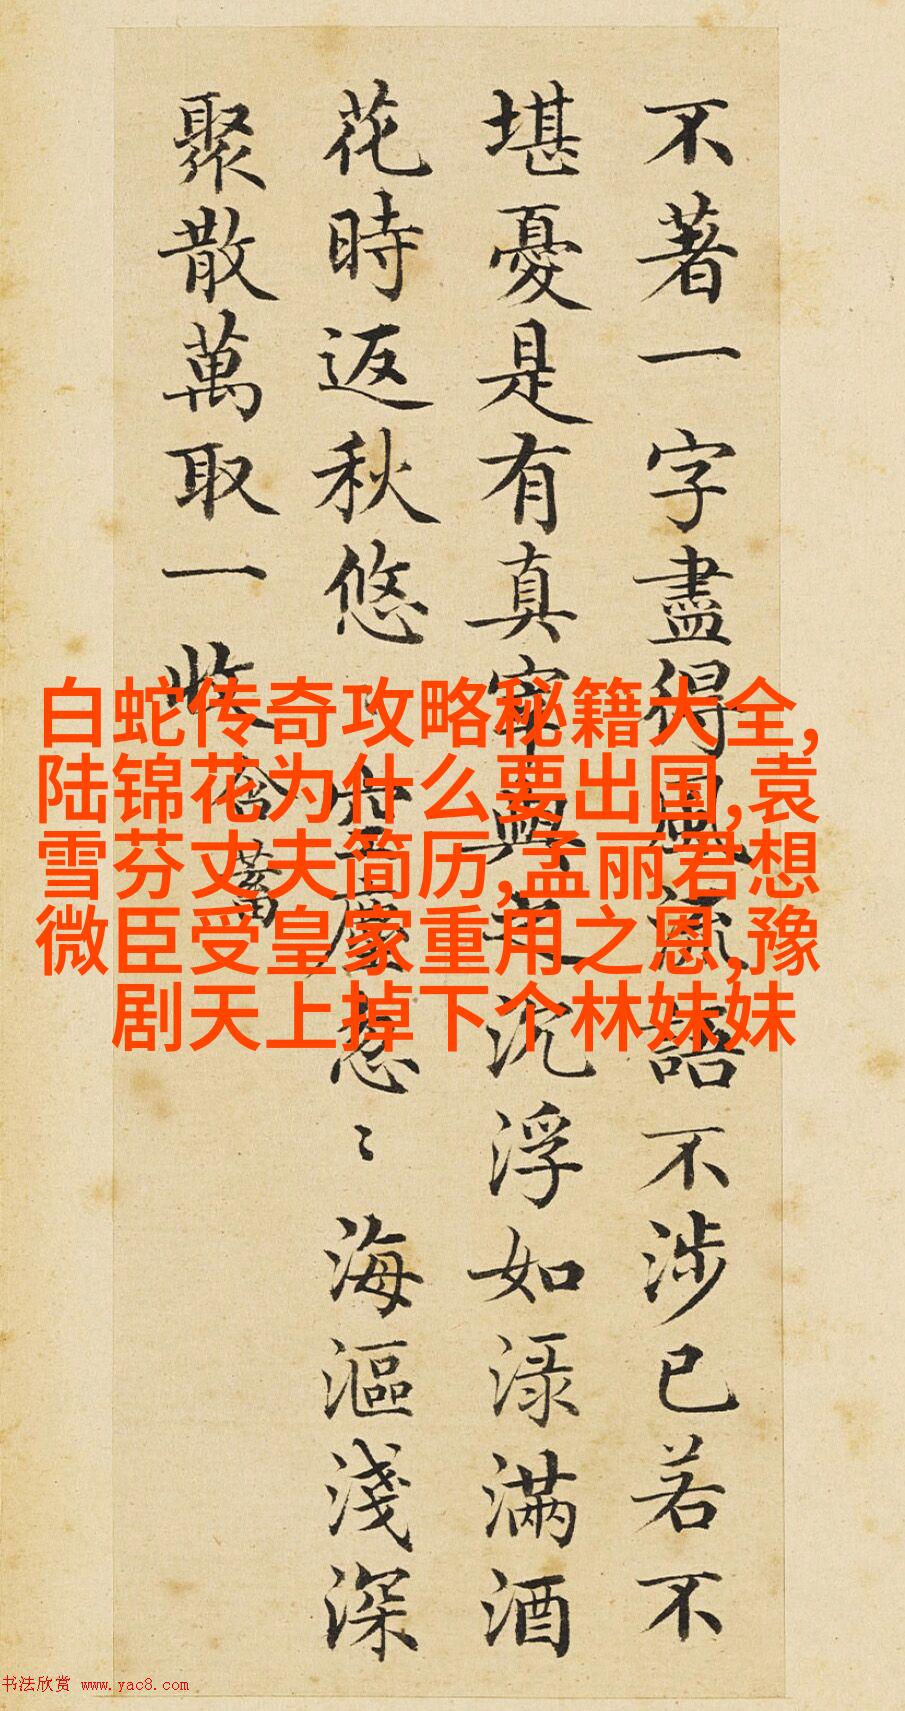 不著一字盡得風流語不涉已若不
堪憂是有真宰與之沉浮如渌滿酒
花時返秋悠〻空塵忽〻海漚淺深
聚散萬取一收
含蓄
白蛇传奇攻略秘籍大全,
陆锦花为什么要出国,袁
雪芬丈夫简历,孟丽君想
微臣受皇家重用之恩,豫
剧天上掉下个林妹妹
书法欣赏 www.yac8.com